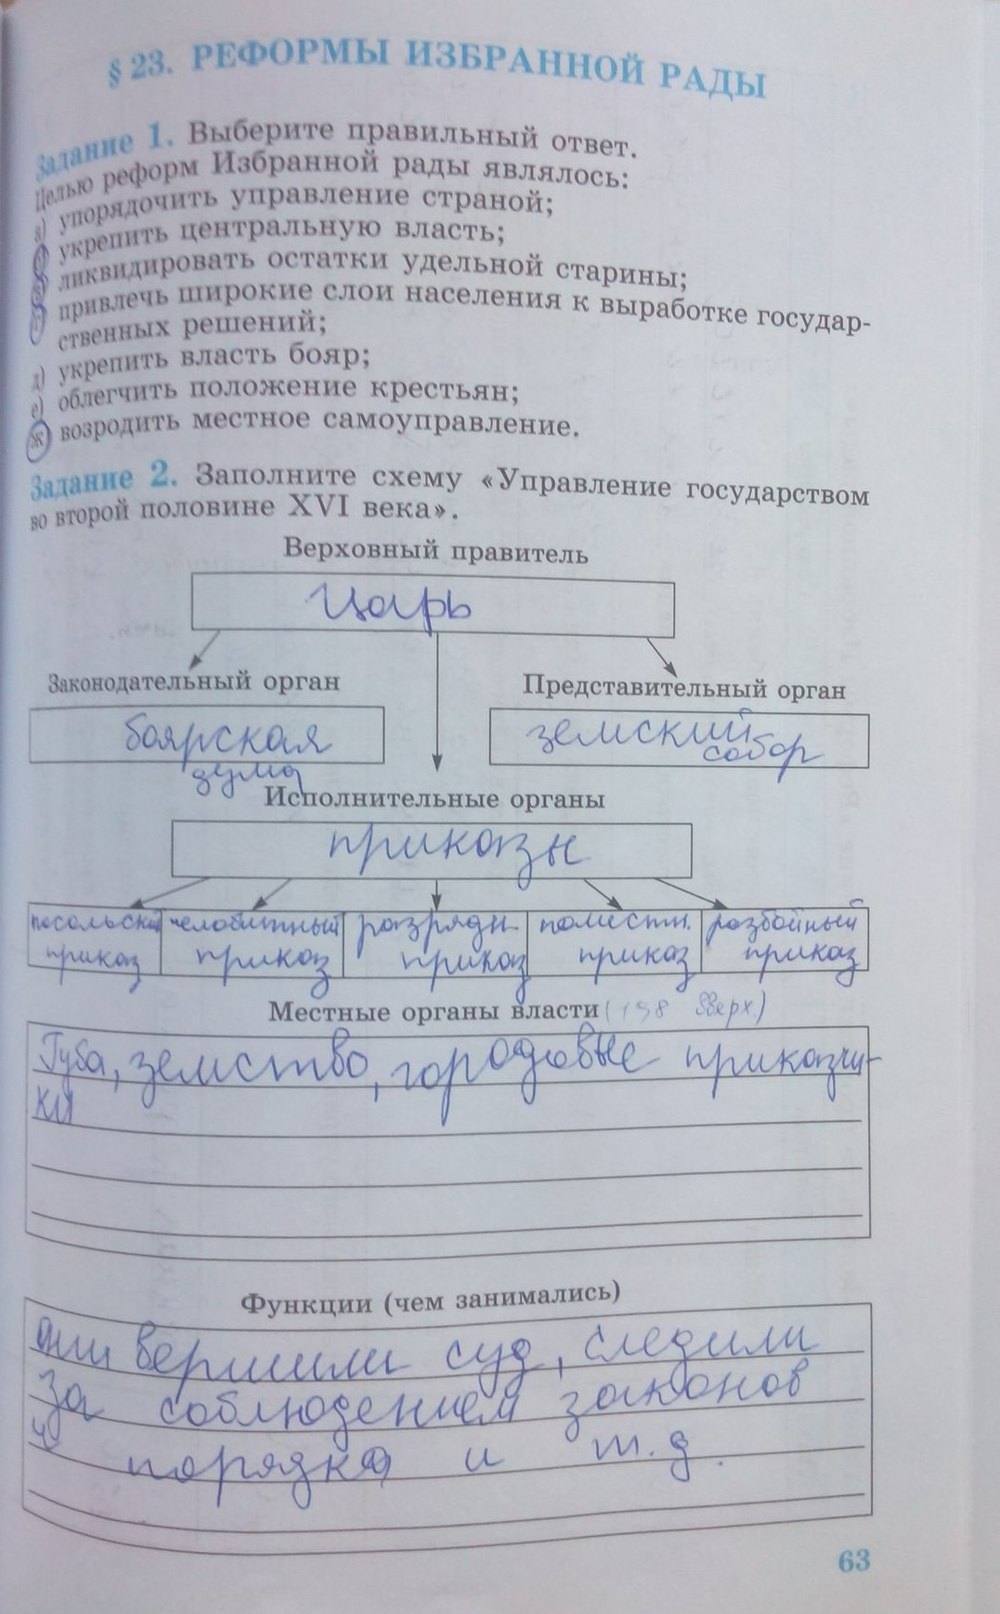 § 23. РЕФОРМЫ ИЗБРАННОЙ РАДЫ
Задание 1. Выберите правильный ответ.
Целью реформ Избранной рады являлось:
а) упорядочить управление страной;
укрепить центральную власть;
ликвидировать остатки удельной старины;
привлечь широкие слои населения к выработке государ-
ственных решений;
д) укрепить власть бояр;
е) облегчить положение крестьян;
ж возродить местное самоуправление.
Задание 2. Заполните схему «Управление государством
во второй половине XVI века».
Верховный правитель
Царь
Законодательный орган
Представительный орган
боярская
дума
земский
собор
Исполнительные органы
приказы
посольский
приказ
челобитный
приказ
разрядн.
приказ
поместн.
приказ
разбойный
приказ
Местные органы власти (198 вверх.)
Губа, земство, городовые приказчи-
ки
Функции (чем занимались)
они вершили суд, следили
за соблюдением законов
и порядка и т.д.
63